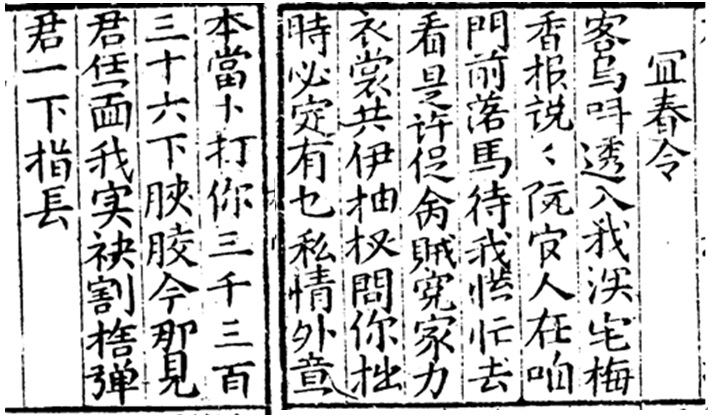 冝春令
客鳥呌透入我深宅梅
香报說〻阮官人在咱
門前落馬待我慌忙去
看是許促命賊冤家力
衣裳共伊抽扠問你拙
時必定有乜私情外意
本當卜打你三千三百
三十六下脥今那見
君任面我实袂割捨弹
君一下指長